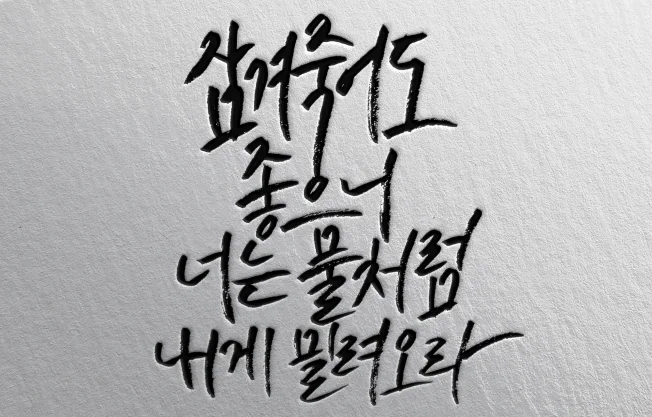 잠겨죽어도
좋으니
너는 물처럼
내게 밀려오라